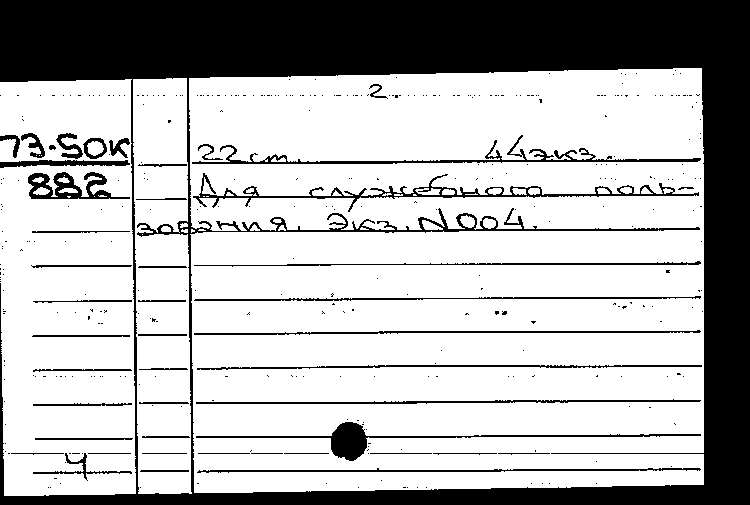 2.
73-50К
22 см. 44 экз.
882
Для служебного поль-
зования. Экз. N004.
4